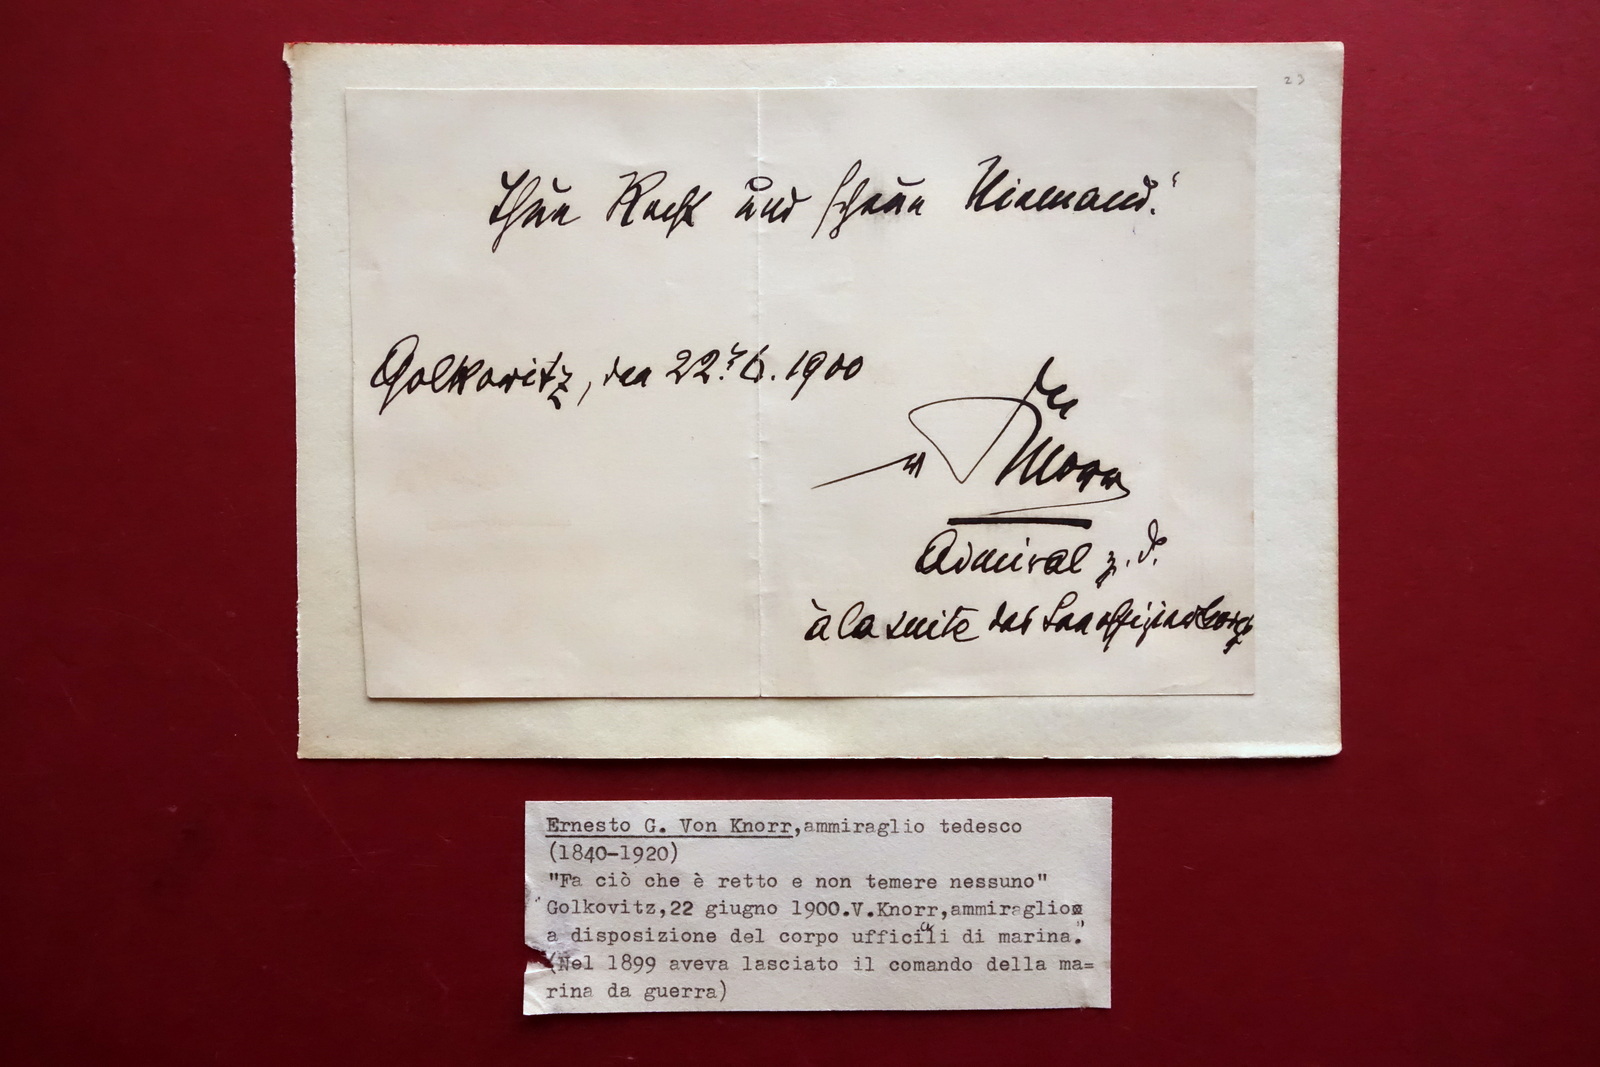 23
Thue Recht und scheue Niemand.
Golkowitz, den 22. 6. 1900
v Knorr
Admiral z. D.
à la suite des Seeoffizierkorps
Ernesto G. Von Knorr,ammiraglio tedesco
(1840-1920)
"Fa ciò che è retto e non temere nessuno"
Golkovitz,22 giugno 1900.V.Knorr,ammiraglio
a disposizione del corpo ufficiali di marina."
(Nel 1899 aveva lasciato il comando della ma=
rina da guerra)